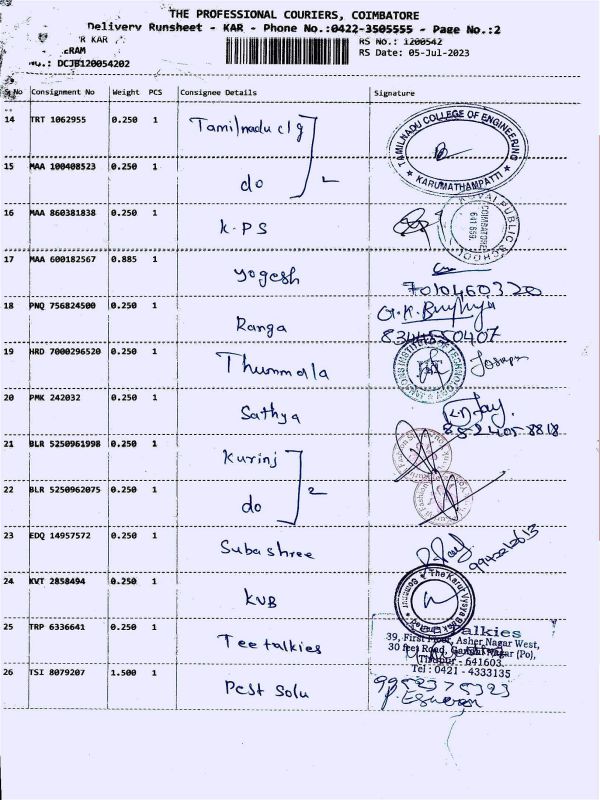 THE PROFESSIONAL COURIERS, COIMBATORE
Delivery Runsheet - KAR - Phone No.:0422-3505555 - Page No.:2
R KAR
RS No.: 1200542
ERAM
RS Date: 05-Jul-2023
No.: DCJB120054202
S No Consignment No Weight PCS Consignee Details Signature
14 TRT 1062955 0.250 1 Tamilnadu clg
TAMILNADU COLLEGE OF ENGINEERING
* KARUMATHAMPATTI *
15 MAA 100408523 0.250 1 do 2
16 MAA 860381838 0.250 1 K.P.S
PUBLIC SCHOOL
COIMBATORE
641 659.
17 MAA 600182567 0.885 1 yogesh
7010460320
18 PNQ 756824500 0.250 1 Ranga
8344550407
19 HRD 7000296520 0.250 1 Thummala
JANSONS INSTITUTE OF TECHNOLOGY
20 PMK 242032 0.250 1 Sathya
21 BLR 5250961998 0.250 1 Kurinj
22 BLR 5250962075 0.250 1 do 2
23 EDQ 14957572 0.250 1 Subashree
24 KVT 2858494 0.250 1 KVB
The Karur Vysya Bank
25 TRP 6336641 0.250 1 Teetalkies
alkies
39, First Floor, Asher Nagar West,
30 feet Road, Gandhi Nagar (Po),
Tirupur - 641603.
Tel : 0421 - 4333135
26 TSI 8079207 1.500 1 Pest Solu